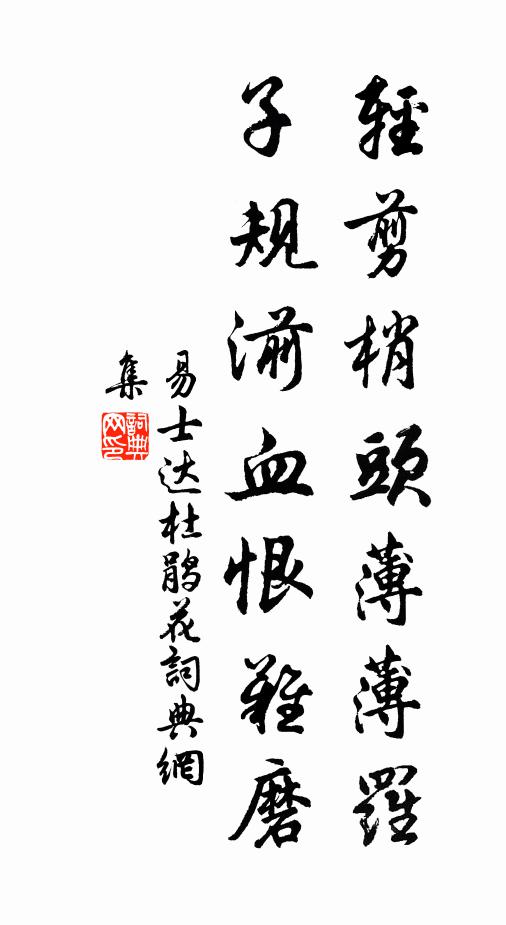 輕剪梢頭薄薄羅
子規湔血恨難磨
易士达杜鹃花詞典網
集
詞典
网印